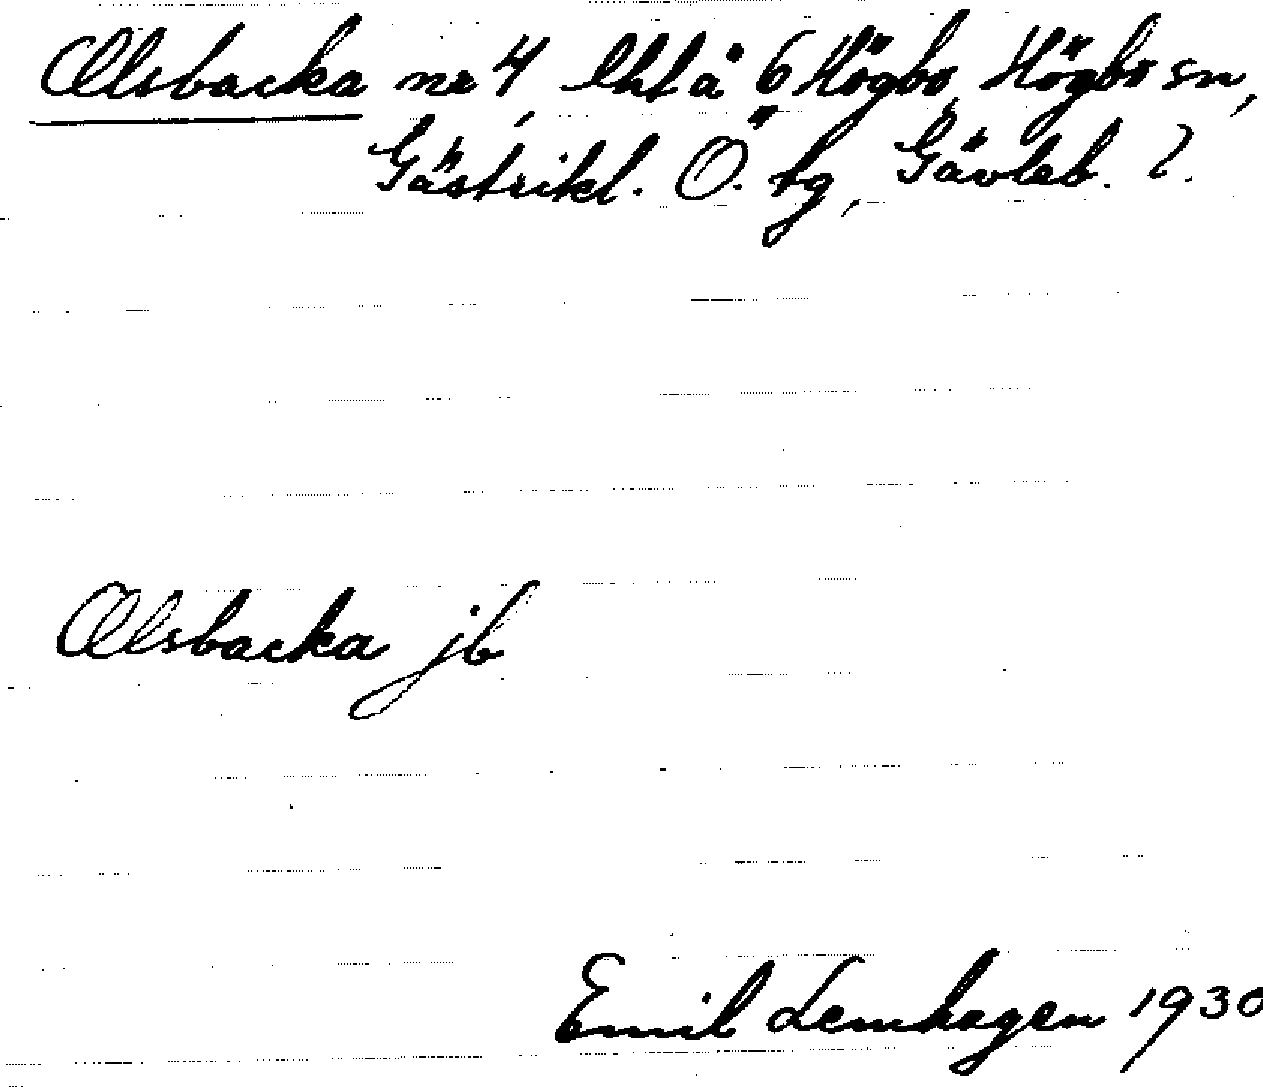 Olsbacka nr 4, lht å 6 Högbo, Högbo sn,
Gästrikl. Ö. tg, Gävleb. l.
Olsbacka jb
Emil Lemhagen 1930